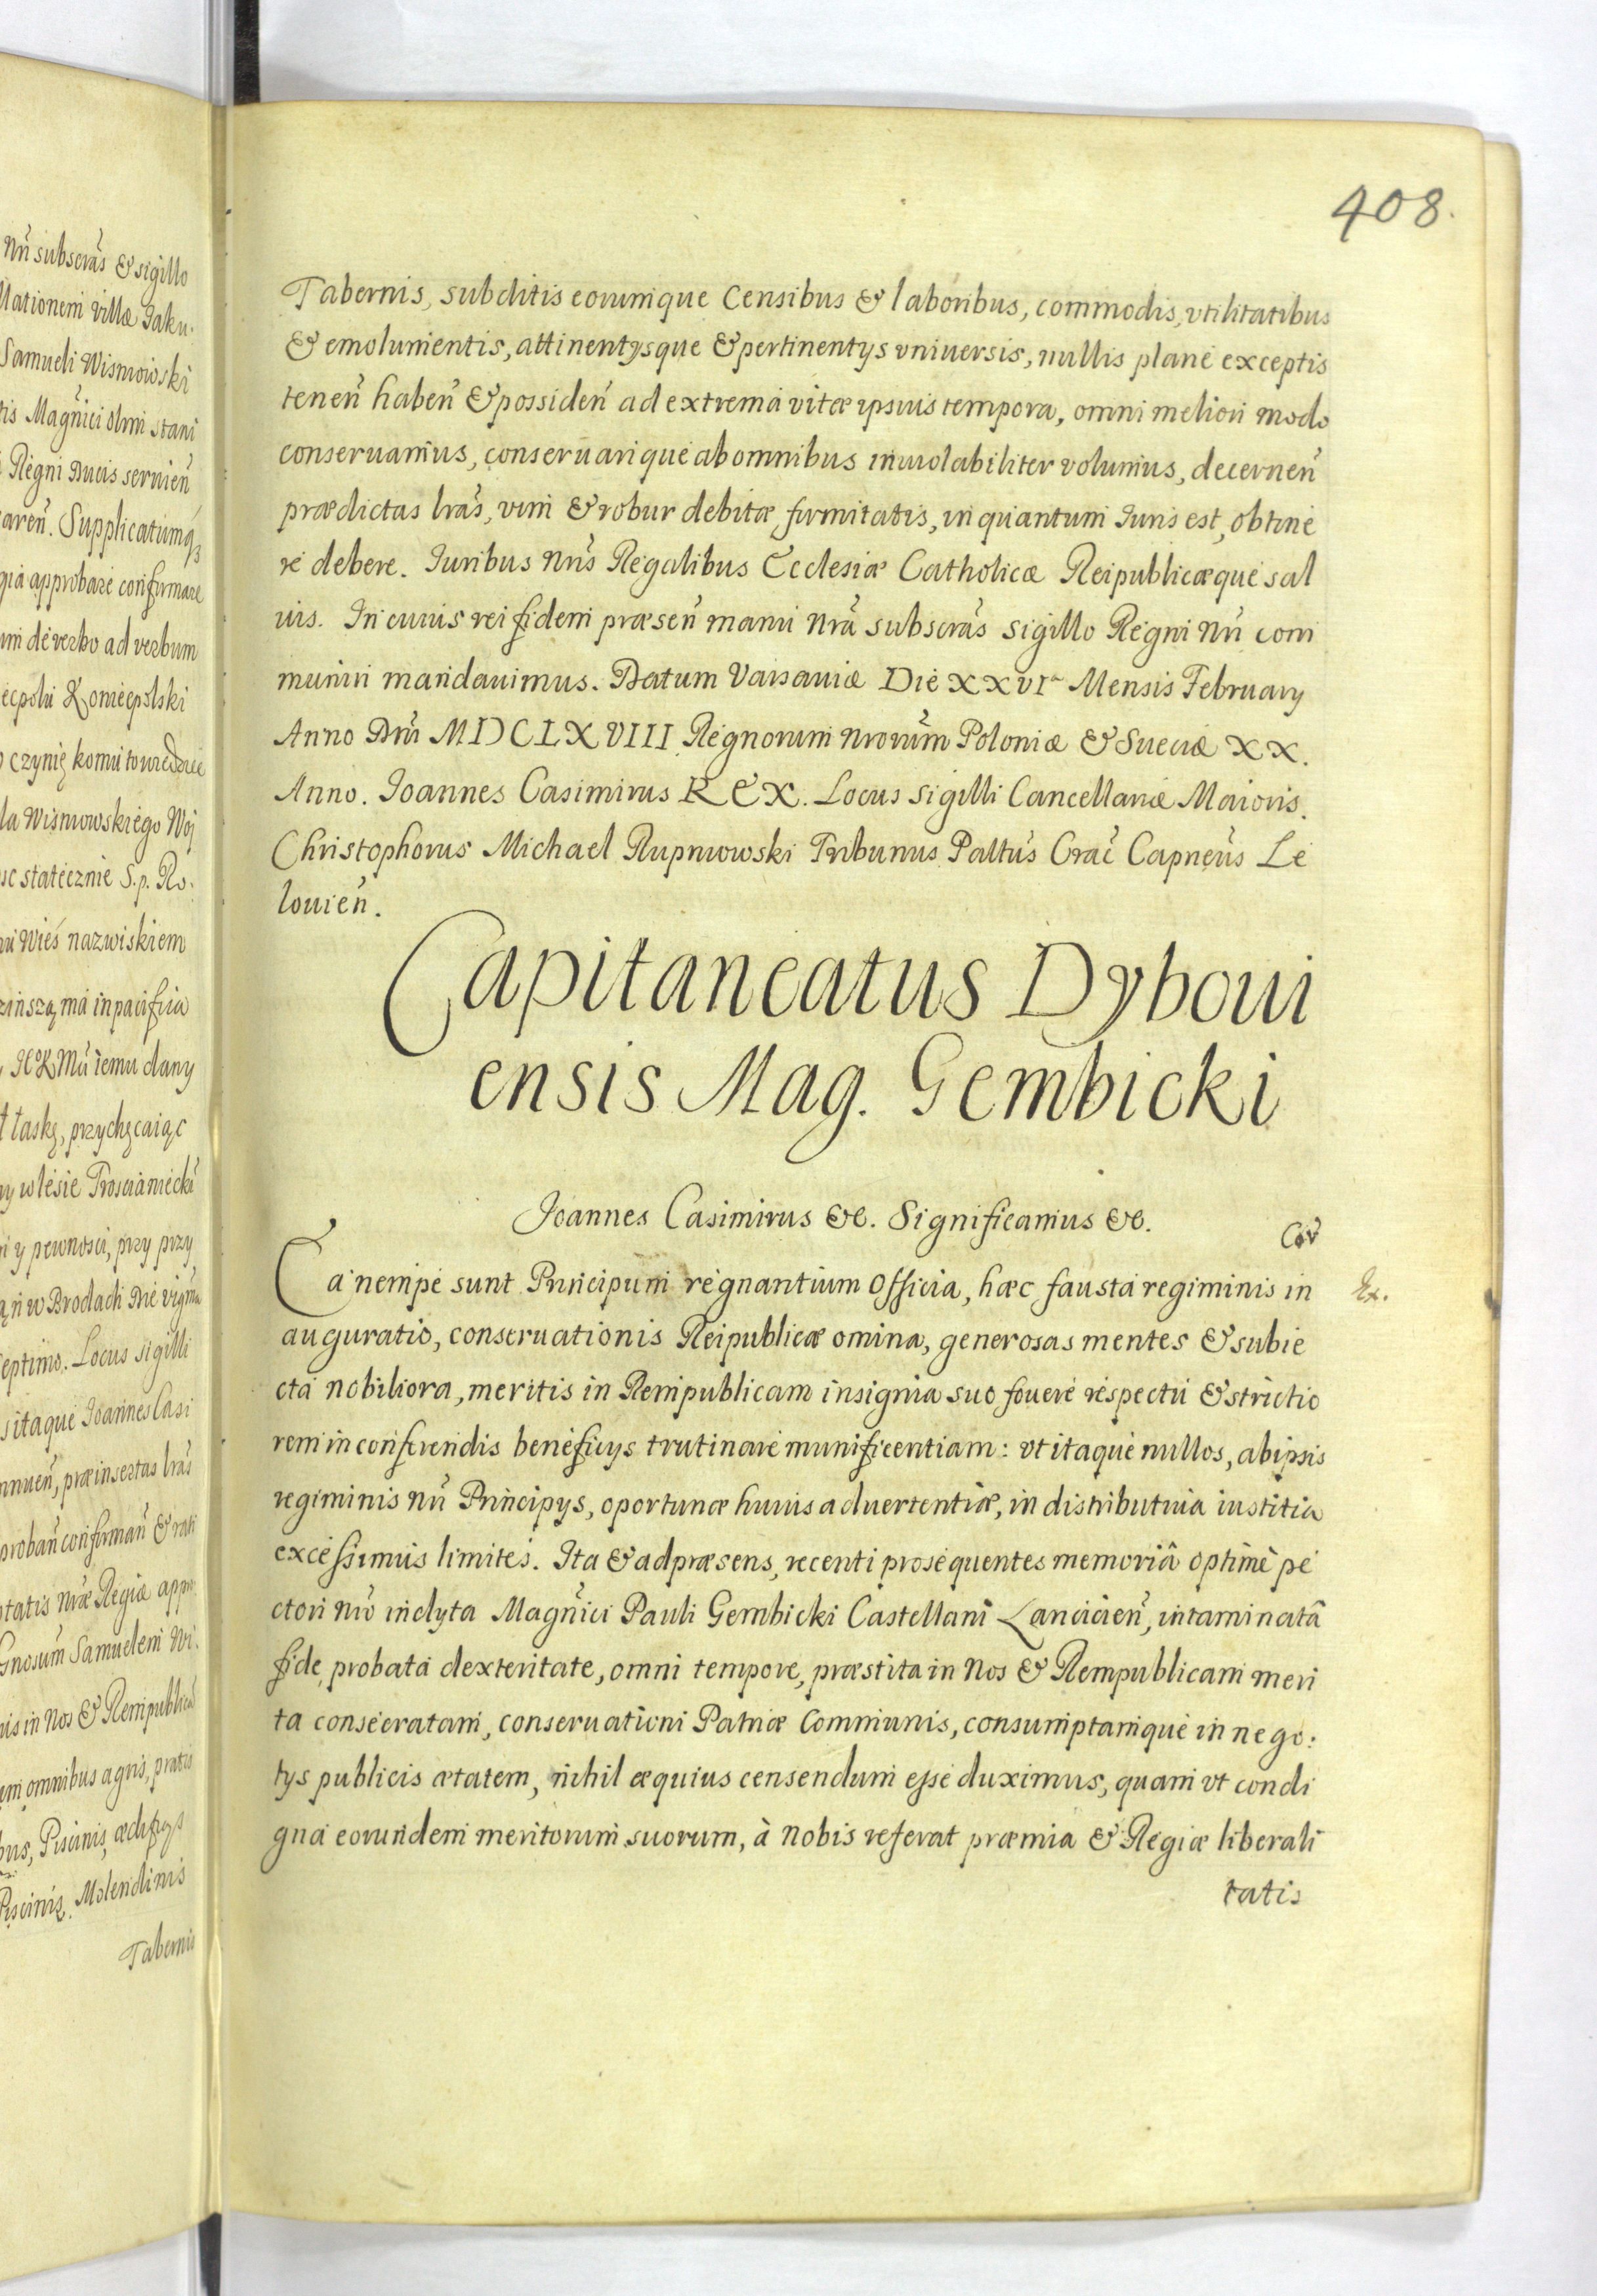 nri subscras & sigillo
llationem villæ Jaku
Samueli Wisniowski
tis Magnici olim stani
Regni Ducis servien
aren. Supplicatumq
gia approbare confirmare
um de verbo ad verbum
iecpolu Koniecpolski
o czynię komu to wiedziec
la Wisniowskiego Woj
sc statecznie S.p. Ro.
ni Wieś nazwiskiem
ma in pacifica
JEKMci iemu dany
łaskę, przychęcaiąc
w lesie
y pewnosci, przy przy
w Brodach Die vigma
septimo. Locus sigilli
s itaque Joannes Casi
nnuen, præinsertas lras
proban confirman & rati
tatis nræ Regiæ appro
Gnosum Samuelem Wi.
is in Nos & Rempublica
um omnibus agris, pratis
bus, Piscinis, ædificys
Piscinis, Molendinis
Tabernis
408.
Tabernis, subditis eorumque Censibus & laboribus, commodis, vtilitatibus
& emolumentis, attinentysque & pertinentys vniuersis, nullis plane exceptis
tenen̄ haben̄ & possiden̄ ad extrema vitæ ipsius tempora, omni meliori modo
conseruamus, conseruarique ab omnibus inuiolabiliter volumus, decernen̄
prædictas lras̄, vim & robur debitæ firmitatis, in quantum Iuris est, obtine
re debere. Iuribus nris̄ Regalibus Ecclesiæ Catholicæ Reipublicæque sal
uis. In cuius rei fidem præsen̄ manu nra̅ subscras̄ sigillo Regni nri̅ com
muniri mandauimus. Datum Varsauiæ Die XXVIa Mensis February
Anno Dni̅ MDCLXVIII Regnorum nroru̅m Poloniæ & Sueciæ XX.
Anno. Joannes Casimirus REX. Locus sigilli Cancellariæ Maioris.
Christophorus Michael Rupniowski Tribunus Paltus̄ Crac̄ Capneus̄ Le
louien̄.
Capitaneatus Dyboui
ensis Mag. Gembicki
Joannes Casimirus &c. Significamus &c.
Cor
Ea nempe sunt Principum regnantium Officia, hæc fausta regiminis in
Ex.
auguratio, conseruationis Reipublicæ omina, generosas mentes & subie
cta nobiliora, meritis in Rempublicam insignia suo fouere respectu & strictio
rem in conferendis beneficys trutinare munificentiam: vt itaque nullos, ab ipsis
regiminis nri̅ Principys, oportunæ huius aduertentiæ, in distributiua iustitia
excessimus limites. Ita & ad præsens, recenti prosequentes memoriâ optimè pe
ctori nro̅ inclyta Magnic̅i Pauli Gembicki Castellani Lancicien̄, intaminatâ
fide, probata dexteritate, omni tempore, præstita in Nos & Rempublicam meri
ta consecratam, conseruationi Patriæ Communis, consumptamque in nego:
tys publicis ætatem, nihil æquius censendum esse duximus, quam vt condi
gna eorundem meritorum suorum, à nobis referat præmia & Regiæ liberali
tatis